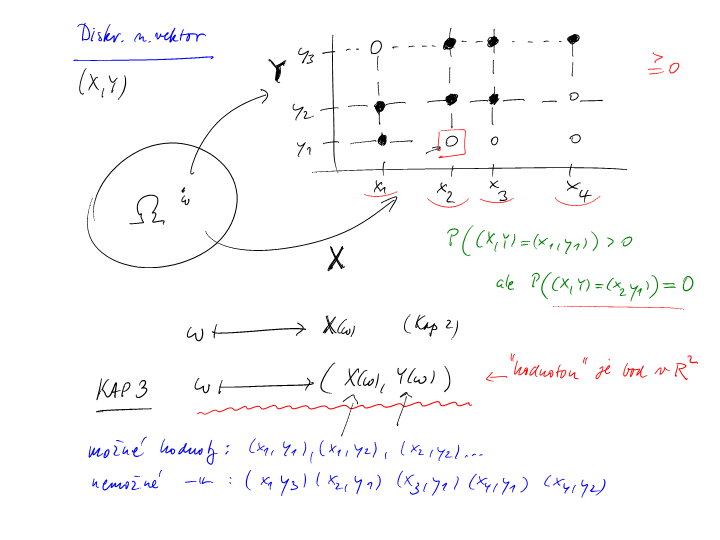 Diskr. n. vektor
(X, Y)
Y
y₃
y₂
y₁
x₁ x₂ x₃ x₄
≥ 0
Ω ω
X
P((X,Y)=(x₁,y₁)) > 0
ale P((X,Y)=(x₂,y₁)) = 0
ω ⟼ X(ω) (Kap 2)
KAP 3 ω ⟼ (X(ω), Y(ω)) ← "hodnotou" je bod v R²
možné hodnoty: (x₁, y₁), (x₁, y₂), (x₂, y₂)...
nemožné -"- : (x₁ y₃) (x₂, y₁) (x₃, y₁) (x₄, y₁) (x₄, y₂)